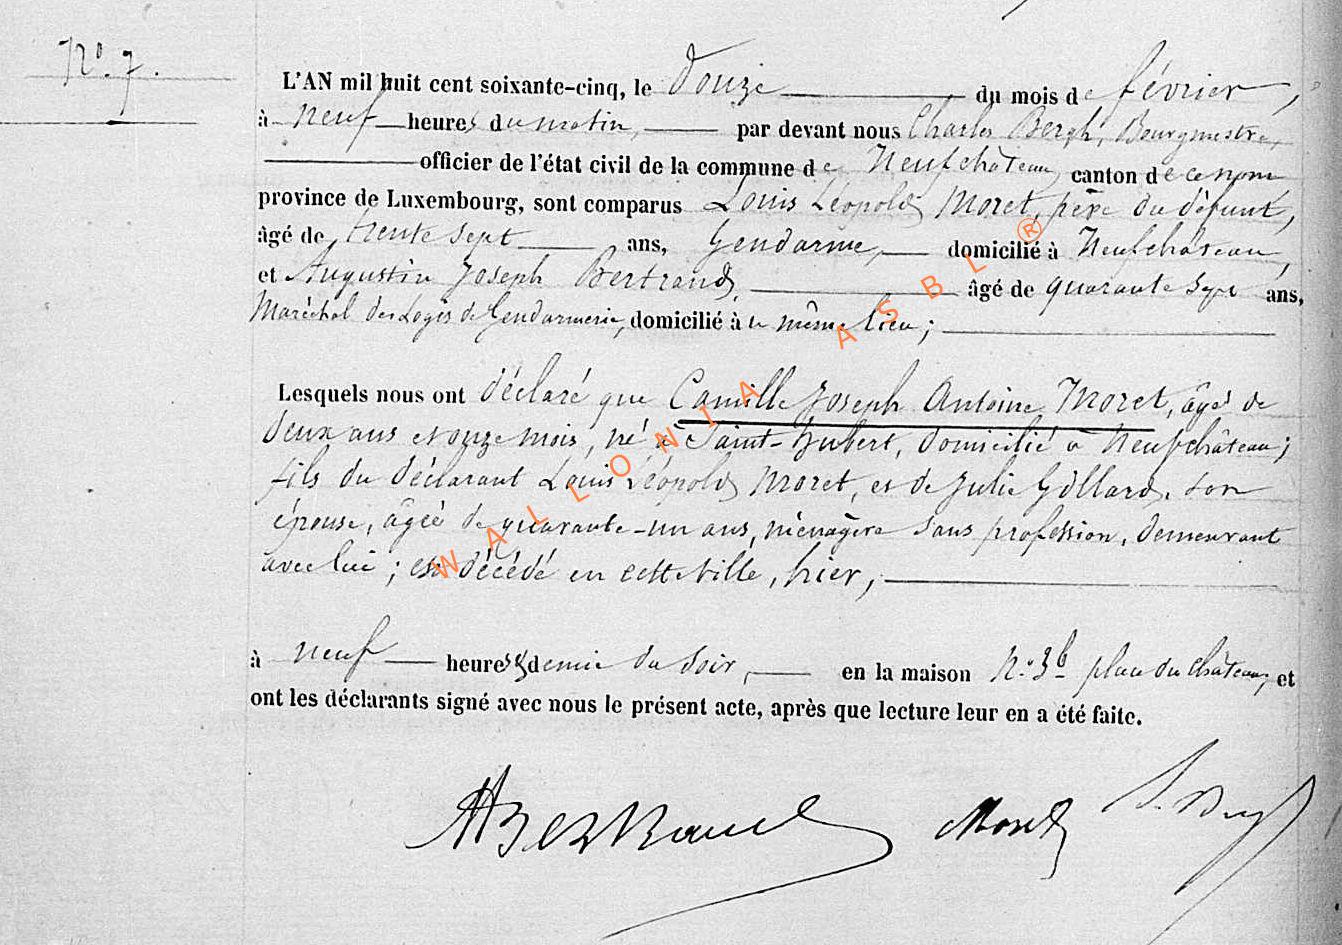 N° 7.
L'AN mil huit cent soixante-cinq, le Douze du mois de février,
à neuf heures du matin, par devant nous Charles Bergh, Bourgmestre,
officier de l'état civil de la commune de Neufchâteau, canton de ce nom
province de Luxembourg, sont comparus Louis Léopold Moret, père du défunt,
âgé de trente sept ans, Gendarme, domicilié à Neufchâteau,
et Augustin Joseph Bertrand, âgé de quarante sept ans,
Maréchal des Logis de Gendarmerie, domicilié à même lieu;
Lesquels nous ont déclaré que Camille Joseph Antoine Moret, âgé de
deux ans et onze mois, né à Saint-Hubert, domicilié à Neufchâteau;
fils du déclarant Louis Léopold Moret, et de Julie Gillard, son
épouse, âgée de quarante-un ans, ménagère sans profession, demeurant
avec lui; est décédé en cette ville, hier,
à neuf heures & demie du soir, en la maison N° 36 place du Château, et
ont les déclarants signé avec nous le présent acte, après que lecture leur en a été faite.
ABertrand Moret
WALLONIA ASBL ®